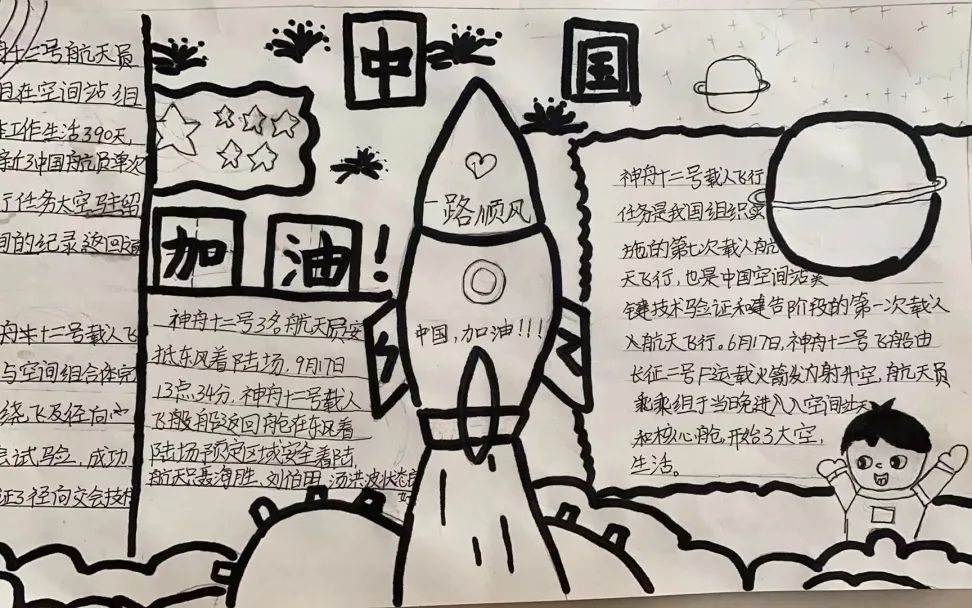 中国
加油!
舟十二号航天员
且在空间站组
工作生活390天,
新了中国航员单次
行任务太空驻留
间的纪录返回
舟十二号载人飞
与空间组合体完
绕飞及径向
试验,成功
证了径向交会技
神舟十二号3名航天员安
抵东风着陆场,9月17日
13点34分,神舟十二号载人
飞船船返回舱在东风着
陆场预定区域安全着陆,
航天员聂海胜、刘伯明、汤洪波状态良
好
一路顺风
中国,加油!!!
神舟十二号载人飞行
任务是我国组织实
施的第七次载人航
天飞行,也是中国空间站
键技术验证和建告阶段的第一次载人
入航天飞行。6月17日,神舟十二号飞船由
长征二号F运载火箭发射升空,航天员
乘乘组于当晚进入入空间站天
和核心舱,开始了太空,
生活。